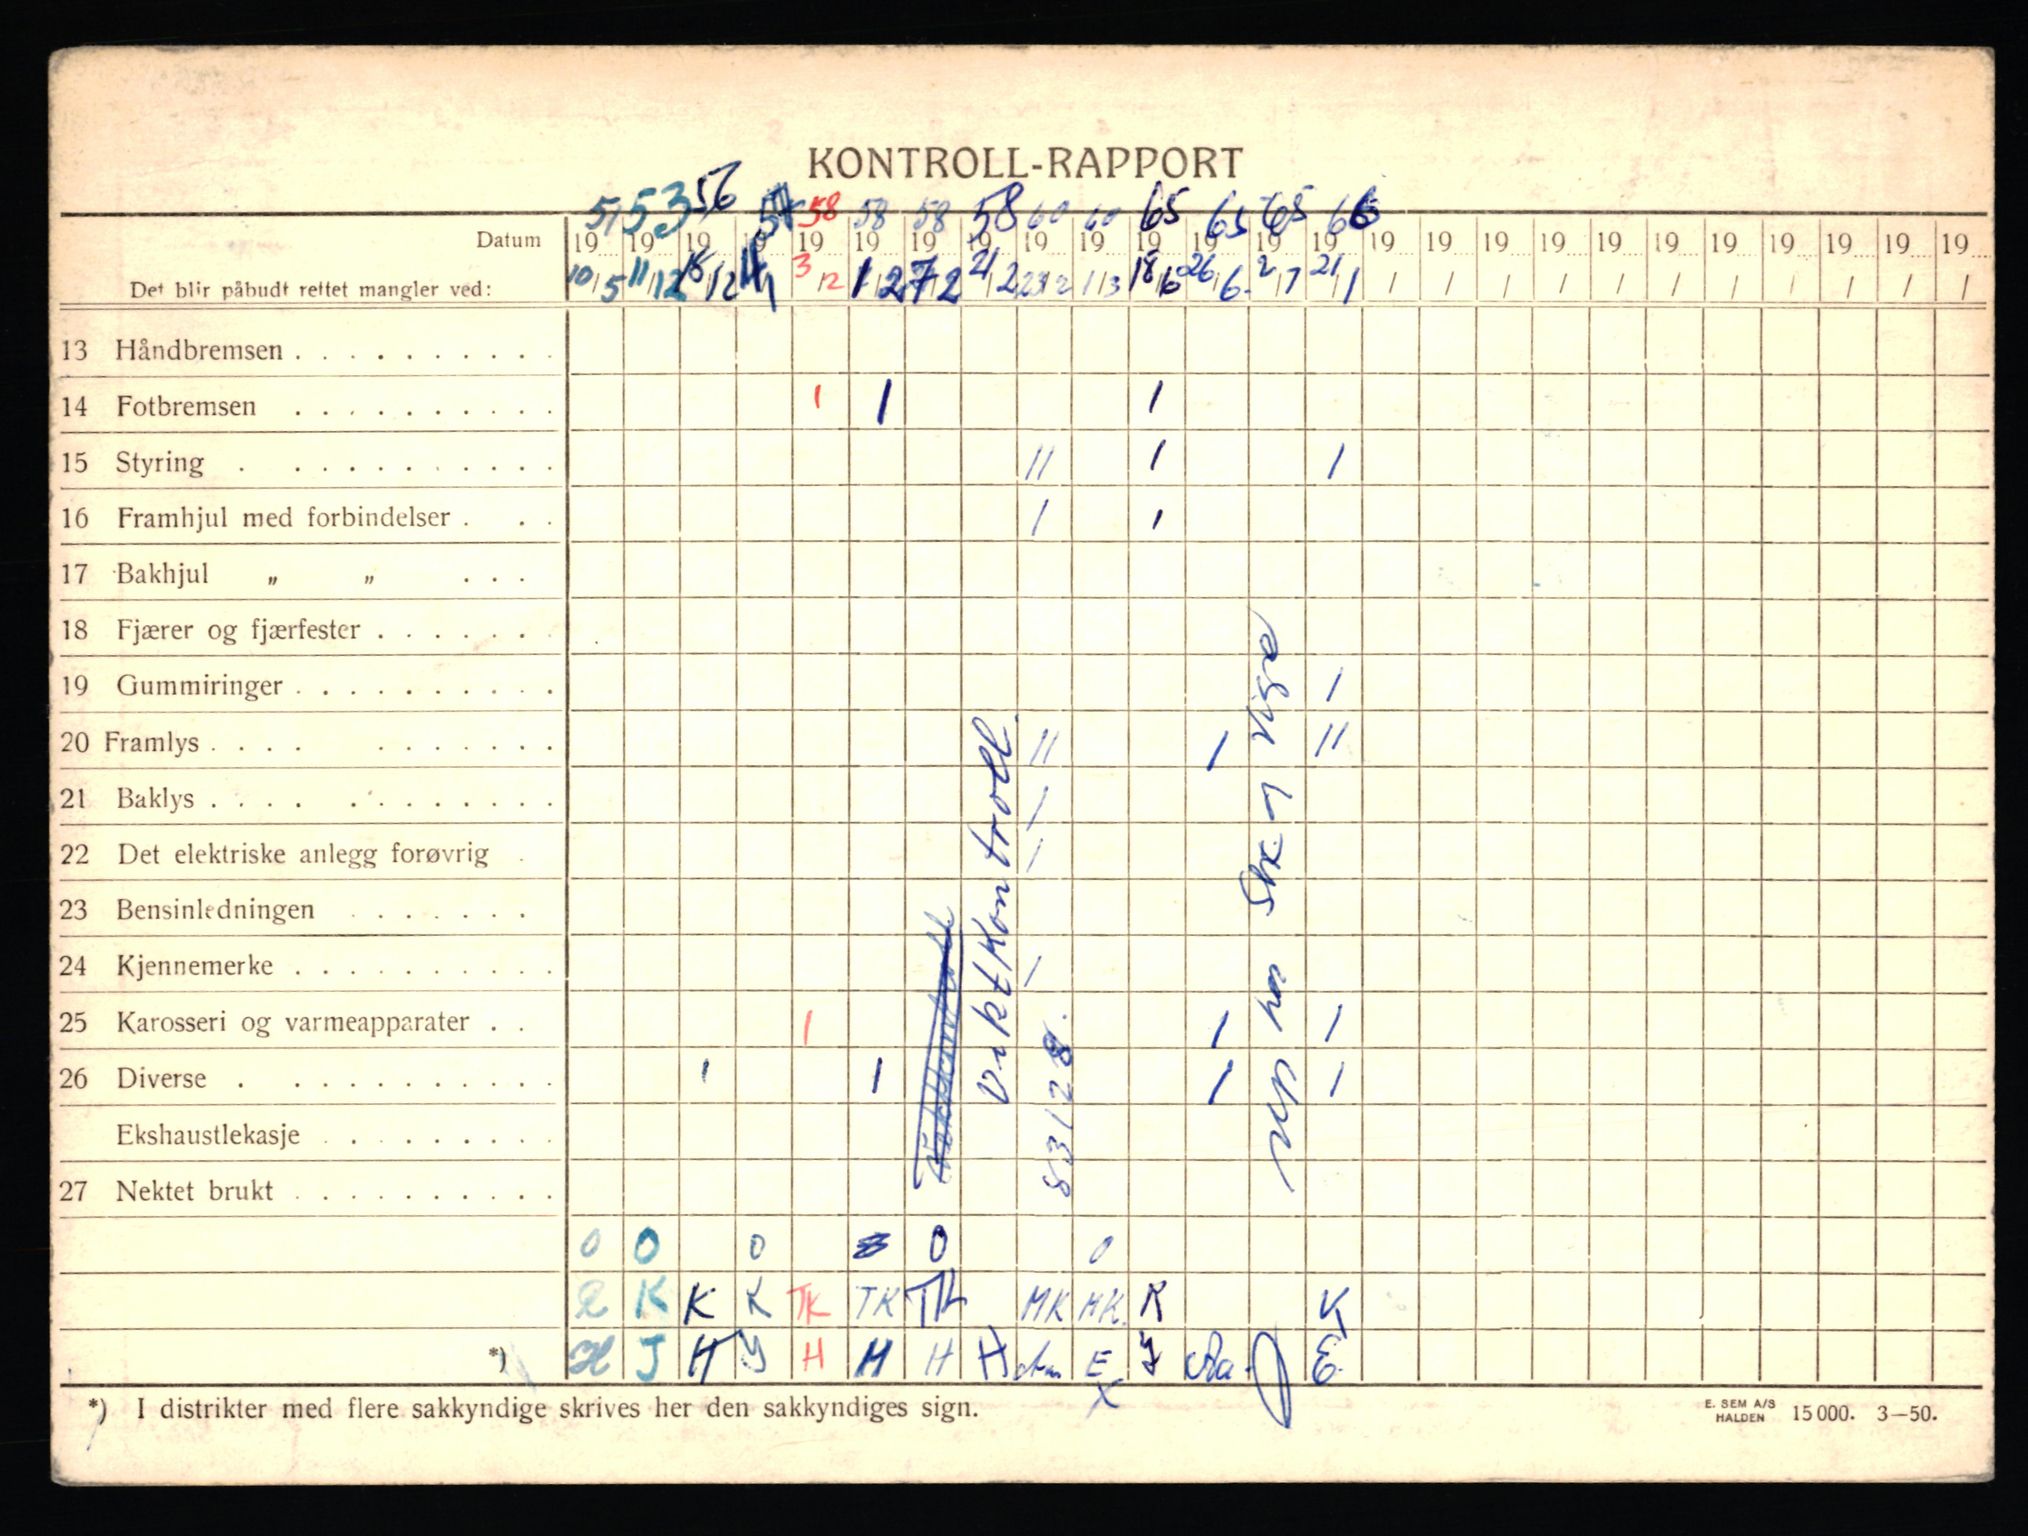 KONTROLL-RAPPORT
51 53 56 57 58 58 58 58 60 60 65 65 65 66
Datum 19 19 19 19 19 19 19 19 19 19 19 19 19 19 19 19 19 19 19 19 19 19 19 19 19
Det blir påbudt rettet mangler ved: 10/5 11/12 18/12 3/12 1/2 7/2 21/2 23/2 1/3 18/6 26/6 2/7 21/1 / / / / / / / / / / /
13 Håndbremsen
14 Fotbremsen 1 1 1
15 Styring 11 1 1
16 Framhjul med forbindelser 1 1
17 Bakhjul „ „
18 Fjærer og fjærfester
19 Gummiringer 1
20 Framlys 11 1 11
21 Baklys 1
22 Det elektriske anlegg forøvrig 1
23 Bensinledningen
24 Kjennemerke 1
25 Karosseri og varmeapparater 1 1 1
26 Diverse 1 1 1 1
Ekshaustlekasje
27 Nektet brukt
Vektkontroll
Vektkontroll.
83128.
0 0 0 0 0
R K K K TK TK TK MK MK. R K
*) H J H Y H H H H E Y E
*) I distrikter med flere sakkyndige skrives her den sakkyndiges sign.
E. SEM A/S
HALDEN 15 000. 3—50.